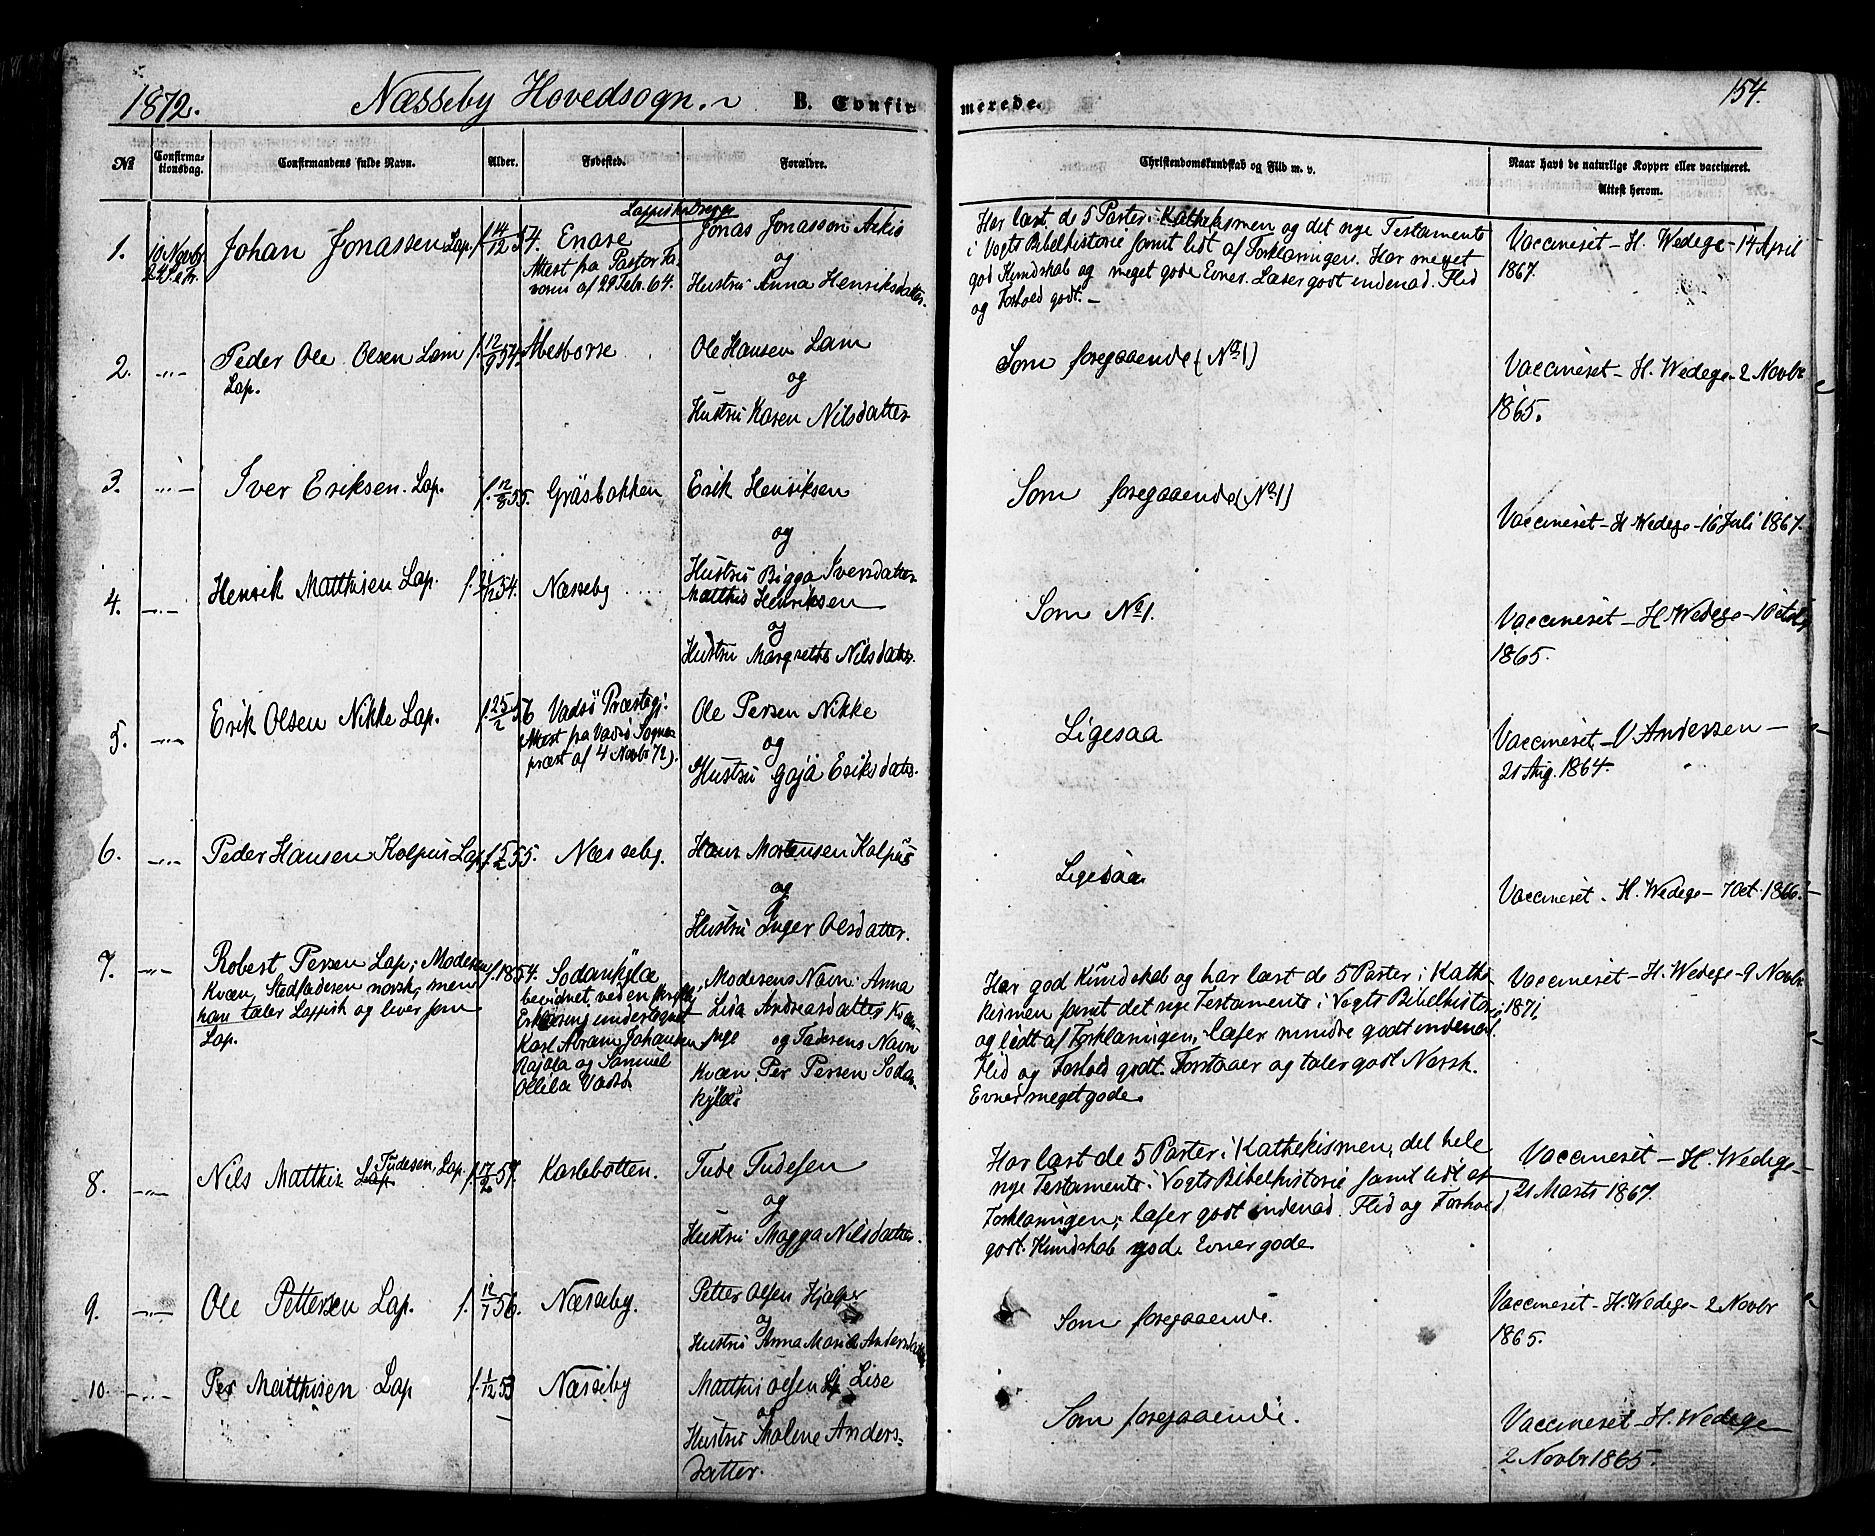 1872. Næsseby Hovedsogn. B. Confirmerede. 154.
No Confirmationsdag. Confirmandens fulde Navn. Alder. Fødested. Forældre. Christendomskundskab og Flid m. v. Naar havt de naturlige Kopper eller vaccineret. Attest herom.
1. 10 Novbr Johan Jonassen Lap. f. 14/12 54. Enare
Attest fra Pastor
af 29 Febr. 64.
Jonas Jonassen
og
Hustru Anna Henriksdatter.
Har læst de 5 Parter i Kathekismen og det nye Testamente
i Vogts Bibelhistorie samt lidt af Forklaringen. Har meget
god Kundskab og meget gode Evner. Læser godt indenad. Flid
og Forhold godt.-
Vaccineret - H. Wedege - 14 April
1867.
2. -"- Peder Ole Olsen Lam
Lap.
f. 12/9 54. Mesborre
Ole Hansen Lam
og
Hustru Karen Nilsdatter
Som foregaaende (No 1)
Vaccineret - H. Wedege - 2 Novbr
1865.
3. -"- Iver Eriksen. Lap. f. 12/8 55. Gräsbakken
Erik Henriksen
og
Hustru Bigga Iversdatter
Som foregaaende (No 1)
Vaccineret - H Wedege - 16 Juli 1867.
4. -"- Henrik Matthisen Lap. 54. Næsseby
Matthis Henriksen
og
Hustru Margrethe Nilsdatter.
Som No 1.
Vaccineret - H Wedege -
1865.
5. -"- Erik Olsen Nikke Lap. f. 25/2 56 Vadsö Præstegj.
(Attest fra Vadsö Sogne-
præst af 4 Novbr 72).
Ole Persen Nikke
og
Hustru Gaja Eriksdatter.
Ligesaa
Vaccineret - Andersen -
21 Aug. 1864.
6. -"- Peder Hansen Kolpus Lap. 55. Næsseby.
Hans Mortensen Kolpus
og
Hustru Inger Olsdatter.
Ligesaa
Vaccineret - H. Wedege - 7 Oct. 1866.
7. -"- Robert Persen Lap; Moderen
Kvæn, Stedfaderen norsk, men
han taler Lappisk og lever som
Lap.
f. 1854. Sodankylæ
bevidnet ved en
Erklæring undertegnet
Karl Abram Johansen
Rajala og Samuel
Ollila Vadsö
Moderens Navn: Anna
Lisa Andreasdatter
og Faderens Navn
Kvæn Per Persen Sodan-
kylæ.
Har god Kundskab og har læst de 5 Parter i Kathe-
kismen samt det nye Testamente i Vogts Bibelhistorie
og lidt af Forklaringen; læser mindre godt indenad.
Flid og Forhold godt. Forstaaer og taler godt Norsk.
Evner meget gode.
Vaccineret - H. Wedege - 9 Novbr
1871.
8. -"- Nils Matthis Lap Tudesen, Lap. 57. Karlebotten.
Tude Tudesen
og
Hustru Magga Nilsdatter.
Har læst de 5 Parter i Kathekismen, det hele
nye Testamente i Vogts Bibelhistorie samt lidt af
Forklaringen; læser godt indenad. Flid og Forhold
godt. Kundskab god. Evner gode.
Vaccineret - H. Wedege -
21 Marts 1867.
9. -"- Ole Pettersen Lap. f. 12/7 56. Næsseby.
Petter Olsen Hjelper
og
Hustru Anna Maria Andersdatter
Som foregaaende.
Vaccineret - H. Wedege - 2 Novbr
1865.
10. -"- Per Matthisen Lap f. 1/12 53 Næsseby
Matthis Olsen Lise
og
Hustru Malene Anders-
datter.
Som foregaaende.
Vaccineret - H. Wedege
2 Novbr 1865.